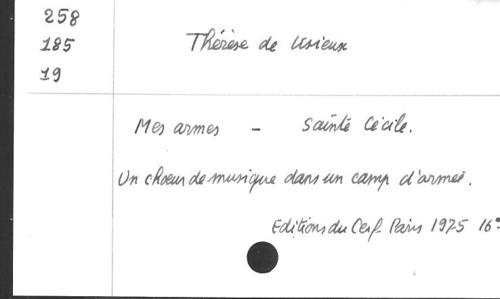 258
185 Thérèse de Lisieux
19
Mes armes - Sainte Cécile.
Un choeur de musique dans un camp d'armée.
Editions du Cerf Paris 1975 16°